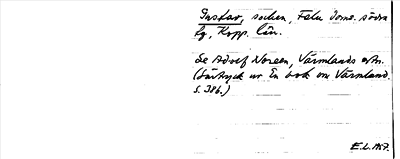 Gustav, socken, Falu doms. södra
lg, Kopp. län.
Se Adolf Noreen, Värmlands ortn.
(Särtryck ur En bok om Värmland.
s. 386.)
E.L. 1957.